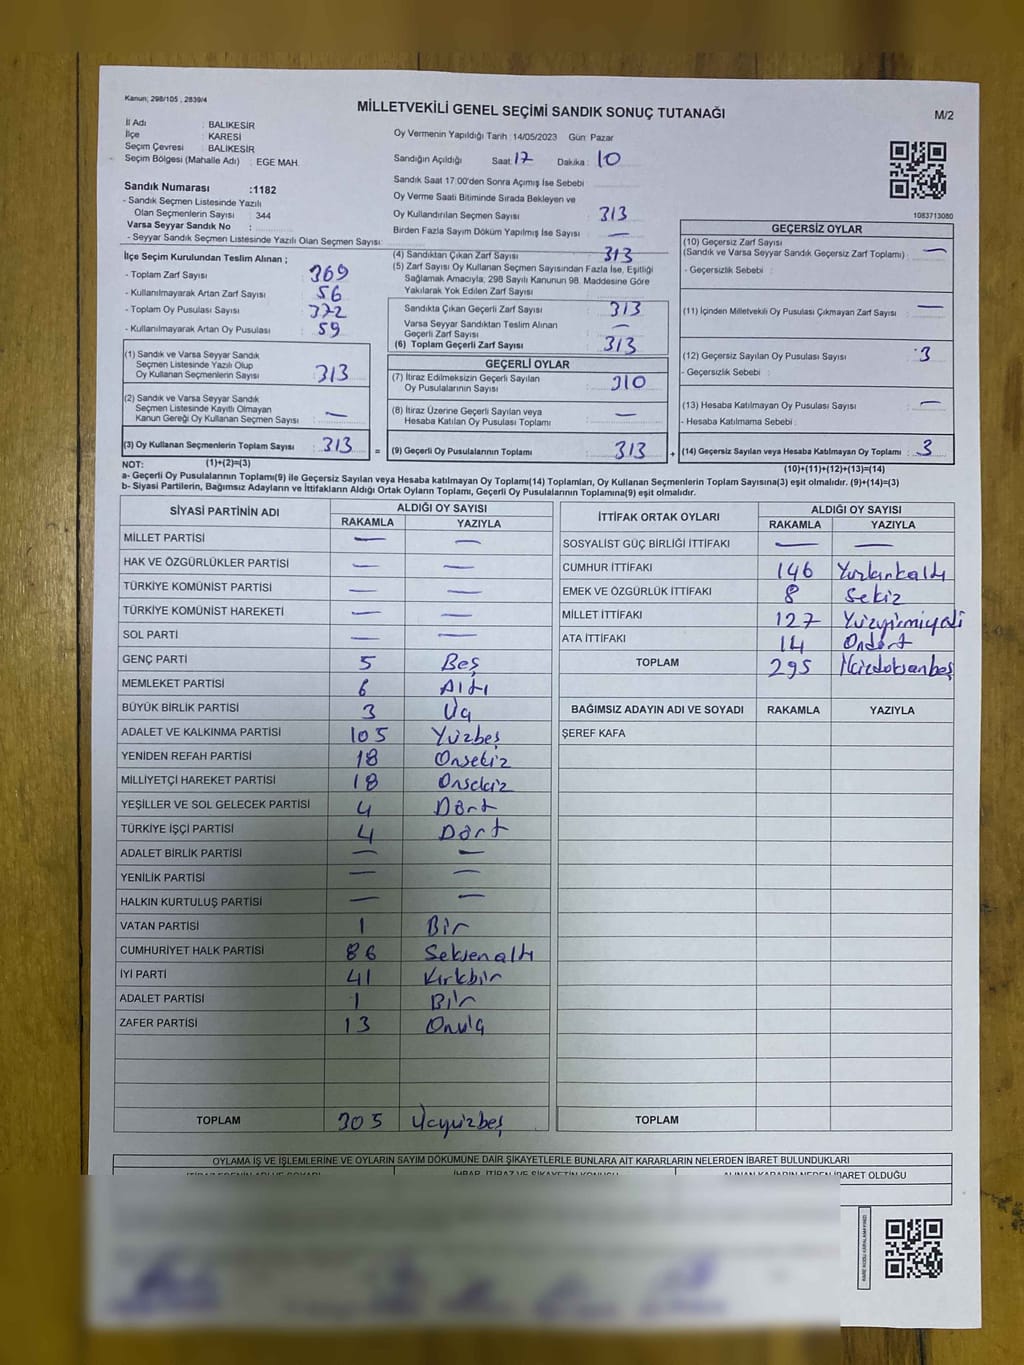 Kanun; 298/105 , 2839/4
MİLLETVEKİLİ GENEL SEÇİMİ SANDIK SONUÇ TUTANAĞI
M/2
İl Adı : BALIKESİR
İlçe : KARESİ
Seçim Çevresi : BALIKESİR
Seçim Bölgesi (Mahalle Adı) : EGE MAH.
Sandık Numarası :1182
- Sandık Seçmen Listesinde Yazılı
Olan Seçmenlerin Sayısı : 344
Varsa Seyyar Sandık No :
- Seyyar Sandık Seçmen Listesinde Yazılı Olan Seçmen Sayısı:
Oy Vermenin Yapıldığı Tarih :14/05/2023 Gün: Pazar
Sandığın Açıldığı Saat: 17 Dakika: 10
Sandık Saat 17:00'den Sonra Açımış İse Sebebi
Oy Verme Saati Bitiminde Sırada Bekleyen ve
Oy Kullandırılan Seçmen Sayısı 313
Birden Fazla Sayım Döküm Yapılmış İse Sayısı : —
1083713080
İlçe Seçim Kurulundan Teslim Alınan ;
- Toplam Zarf Sayısı : 369
- Kullanılmayarak Artan Zarf Sayısı : 56
- Toplam Oy Pusulası Sayısı : 372
- Kullanılmayarak Artan Oy Pusulası : 59
(1) Sandık ve Varsa Seyyar Sandık
Seçmen Listesinde Yazılı Olup
Oy Kullanan Seçmenlerin Sayısı : 313
(2) Sandık ve Varsa Seyyar Sandık
Seçmen Listesinde Kayıtlı Olmayan
Kanun Gereği Oy Kullanan Seçmen Sayısı : —
(3) Oy Kullanan Seçmenlerin Toplam Sayısı : 313 =
(4) Sandıktan Çıkan Zarf Sayısı : 313
(5) Zarf Sayısı Oy Kullanan Seçmen Sayısından Fazla İse, Eşitliği
Sağlamak Amacıyla, 298 Sayılı Kanunun 98. Maddesine Göre
Yakılarak Yok Edilen Zarf Sayısı :
Sandıkta Çıkan Geçerli Zarf Sayısı : 313
Varsa Seyyar Sandıktan Teslim Alınan
Geçerli Zarf Sayısı : —
(6) Toplam Geçerli Zarf Sayısı : 313
GEÇERLİ OYLAR
(7) İtiraz Edilmeksizin Geçerli Sayılan
Oy Pusulalarının Sayısı : 310
(8) İtiraz Üzerine Geçerli Sayılan veya
Hesaba Katılan Oy Pusulası Toplamı : —
(9) Geçerli Oy Pusulalarının Toplamı : 313 +
GEÇERSİZ OYLAR
(10) Geçersiz Zarf Sayısı
(Sandık ve Varsa Seyyar Sandık Geçersiz Zarf Toplamı) : —
- Geçersizlik Sebebi :
(11) İçinden Milletvekili Oy Pusulası Çıkmayan Zarf Sayısı : —
(12) Geçersiz Sayılan Oy Pusulası Sayısı : 3
- Geçersizlik Sebebi :
(13) Hesaba Katılmayan Oy Pusulası Sayısı : —
- Hesaba Katılmama Sebebi :
(14) Geçersiz Sayılan veya Hesaba Katılmayan Oy Toplamı : 3
NOT: (1)+(2)=(3)
(10)+(11)+(12)+(13)=(14)
a- Geçerli Oy Pusulalarının Toplamı(9) ile Geçersiz Sayılan veya Hesaba katılmayan Oy Toplamı(14) Toplamları, Oy Kullanan Seçmenlerin Toplam Sayısına(3) eşit olmalıdır. (9)+(14)=(3)
b- Siyasi Partilerin, Bağımsız Adayların ve İttifakların Aldığı Ortak Oyların Toplamı, Geçerli Oy Pusulalarının Toplamına(9) eşit olmalıdır.
SİYASİ PARTİNİN ADI ALDIĞI OY SAYISI
RAKAMLA YAZIYLA
MİLLET PARTİSİ — —
HAK VE ÖZGÜRLÜKLER PARTİSİ — —
TÜRKİYE KOMÜNİST PARTİSİ — —
TÜRKİYE KOMÜNİST HAREKETİ — —
SOL PARTİ — —
GENÇ PARTİ 5 Beş
MEMLEKET PARTİSİ 6 Altı
BÜYÜK BİRLİK PARTİSİ 3 Üç
ADALET VE KALKINMA PARTİSİ 105 Yüzbeş
YENİDEN REFAH PARTİSİ 18 Onsekiz
MİLLİYETÇİ HAREKET PARTİSİ 18 Onsekiz
YEŞİLLER VE SOL GELECEK PARTİSİ 4 Dört
TÜRKİYE İŞÇİ PARTİSİ 4 Dört
ADALET BİRLİK PARTİSİ — —
YENİLİK PARTİSİ — —
HALKIN KURTULUŞ PARTİSİ — —
VATAN PARTİSİ 1 Bir
CUMHURİYET HALK PARTİSİ 86 Seksenaltı
İYİ PARTİ 41 Kırkbir
ADALET PARTİSİ 1 Bir
ZAFER PARTİSİ 13 Onüç
TOPLAM 305 Üçyüzbeş
İTTİFAK ORTAK OYLARI ALDIĞI OY SAYISI
RAKAMLA YAZIYLA
SOSYALİST GÜÇ BİRLİĞİ İTTİFAKI — —
CUMHUR İTTİFAKI 146 Yüzkırkaltı
EMEK VE ÖZGÜRLÜK İTTİFAKI 8 Sekiz
MİLLET İTTİFAKI 127 Yüzyirmiyedi
ATA İTTİFAKI 14 Ondört
TOPLAM 295 İkiyüzdoksanbeş
BAĞIMSIZ ADAYIN ADI VE SOYADI RAKAMLA YAZIYLA
ŞEREF KAFA
TOPLAM
OYLAMA İŞ VE İŞLEMLERİNE VE OYLARIN SAYIM DÖKÜMÜNE DAİR ŞİKAYETLERLE BUNLARA AİT KARARLARIN NELERDEN İBARET BULUNDUKLARI
İHBAR, İTİRAZ VE ŞİKAYETİN KONUSU ALINAN KARARIN NEDEN İBARET OLDUĞU